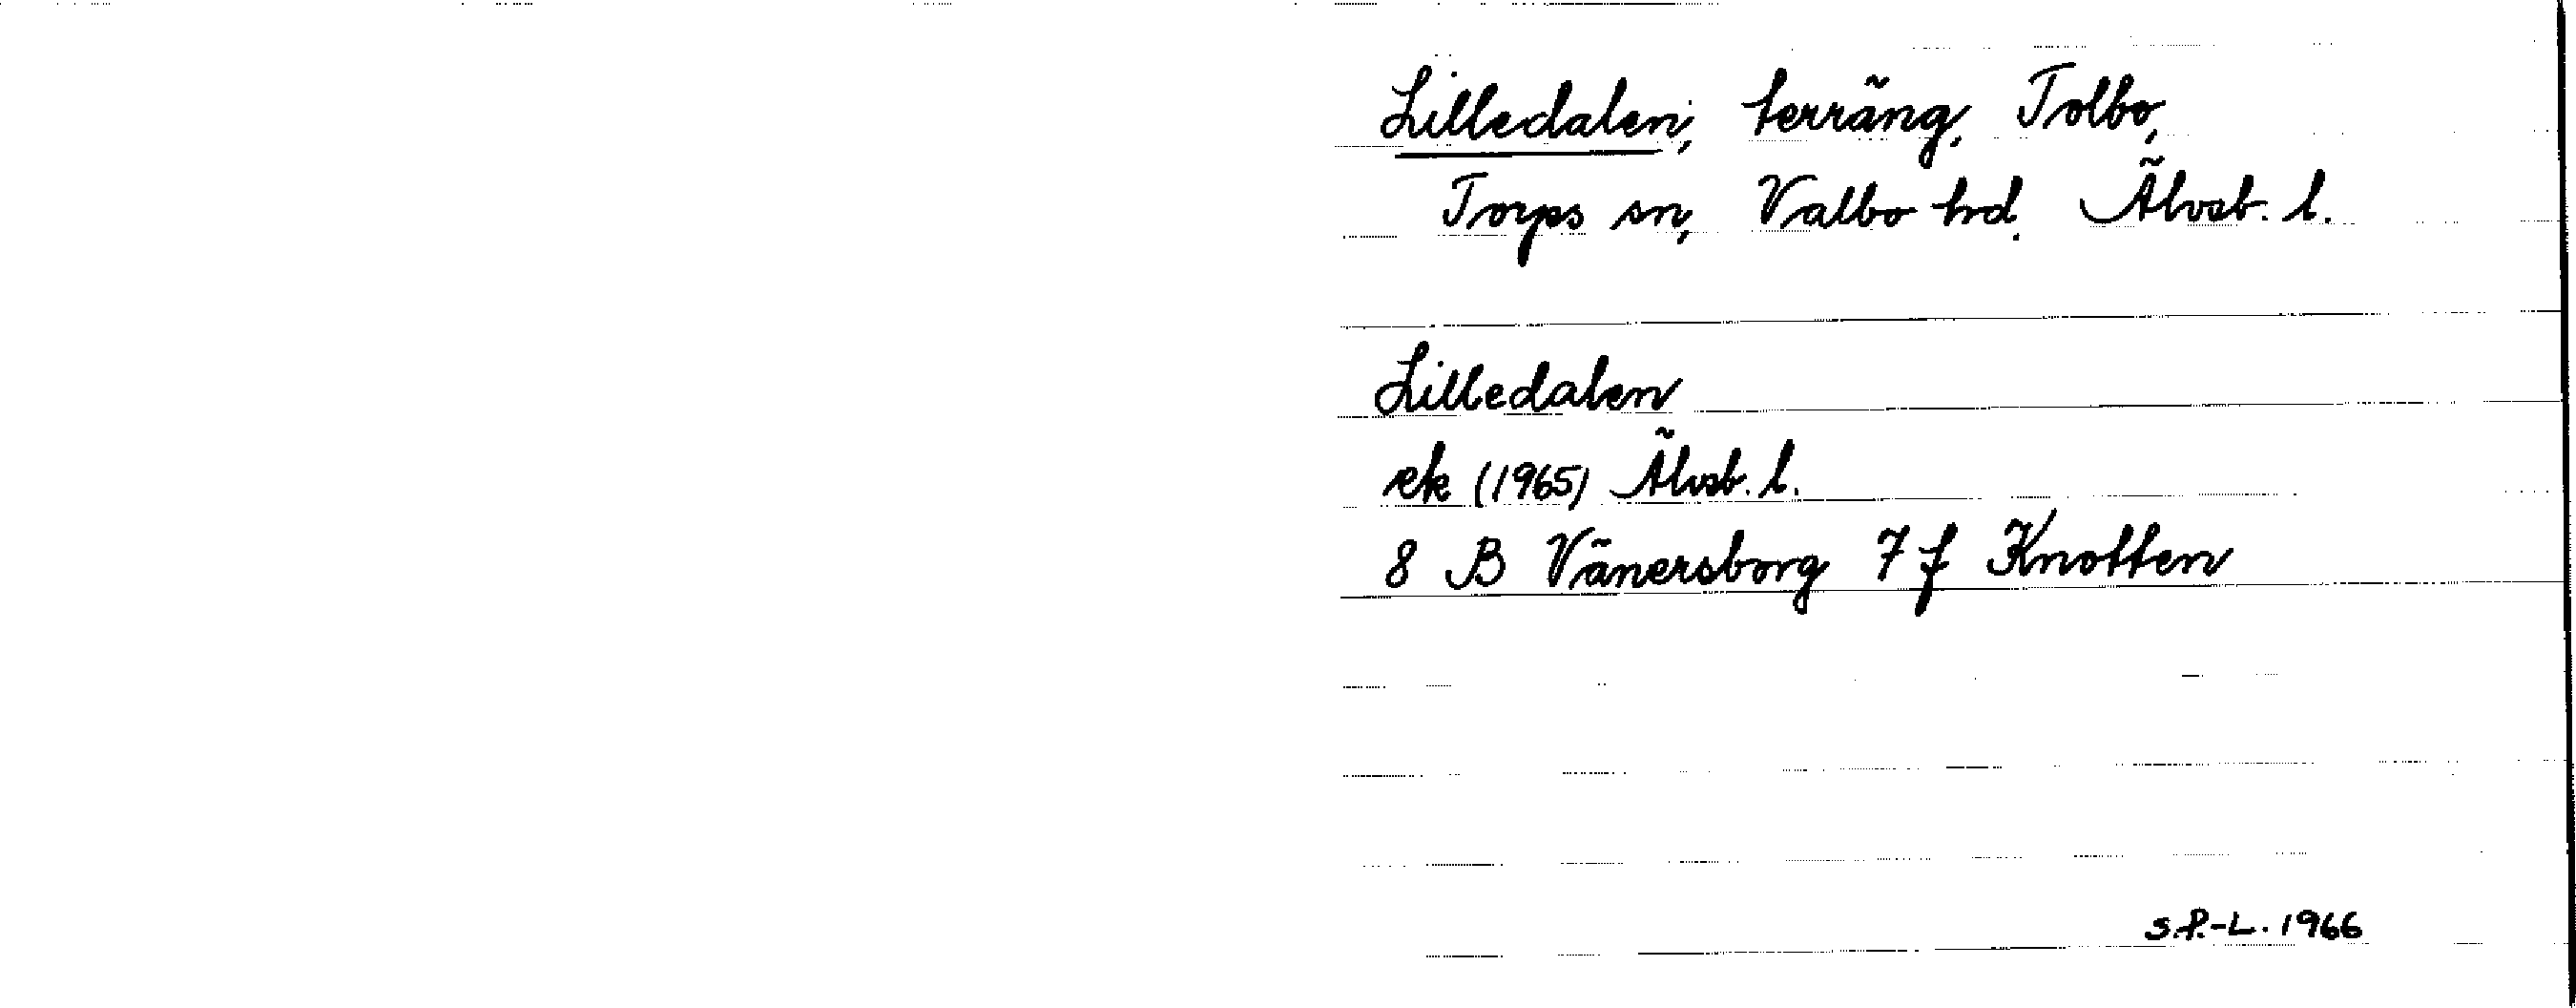 Lilledalen, terräng, Tolbo,
Torps sn, Valbo hd. Älvsb. l.
Lilledalen
ek (1965) Älvsb. l.
8 B Vänersborg 7 f Knotten
S.P.-L. 1966